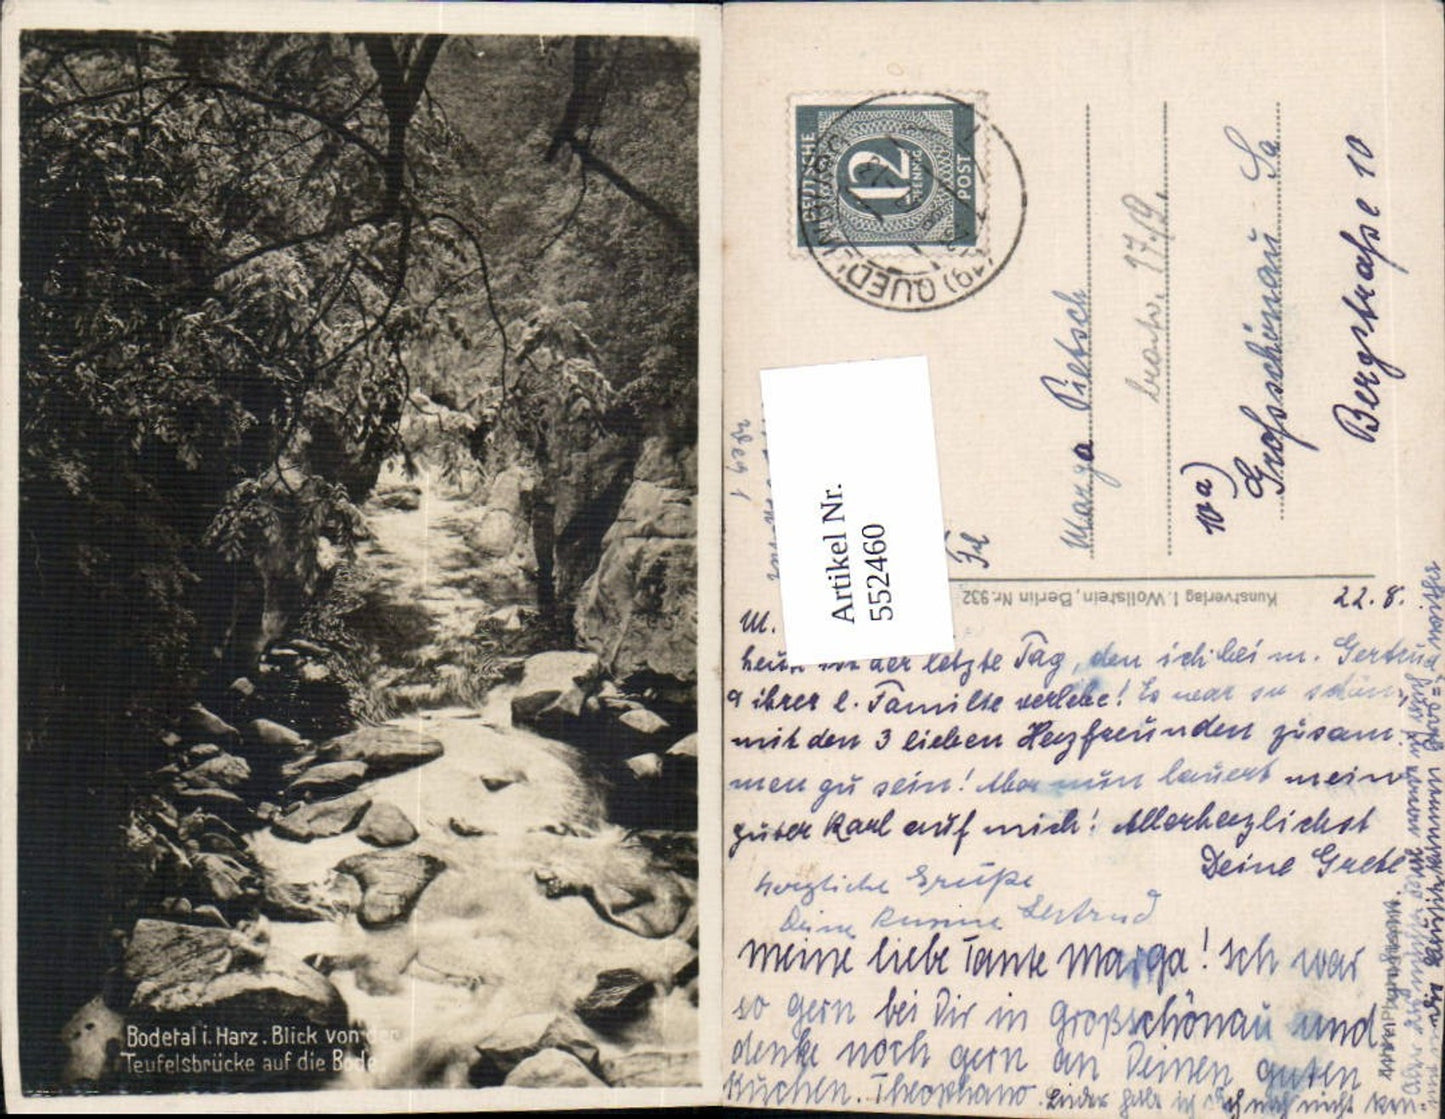 Bodetal i. Harz. Blick von der
Teufelsbrücke auf die Bode
DEUTSCHE
POST
12
PFENNIG
(19) QUEDLINBURG
Artikel Nr.
552460
Frl
Marga Pietsch
10a) Grossschönau Sa
Bergstraße 10
Kunstverlag I. Wollstein, Berlin Nr. 932
22.8.
M.
heute ist der letzte Tag, den ich bei m. Gertrud
ihrer l. Familie verlebe! Es war so schön,
mit den 3 lieben Herzfreunden zusam
men zu sein! Aber nun lauert mein
guter Karl auf mich! Allerherzlichst
Deine Gretel
Herzliche Grüße
Deine Gertrud
Meine liebe Tante Marga! Ich war
so gern bei Dir in Großschönau und
denke noch gern an Deinen guten
Kuchen. Theophano. Leider